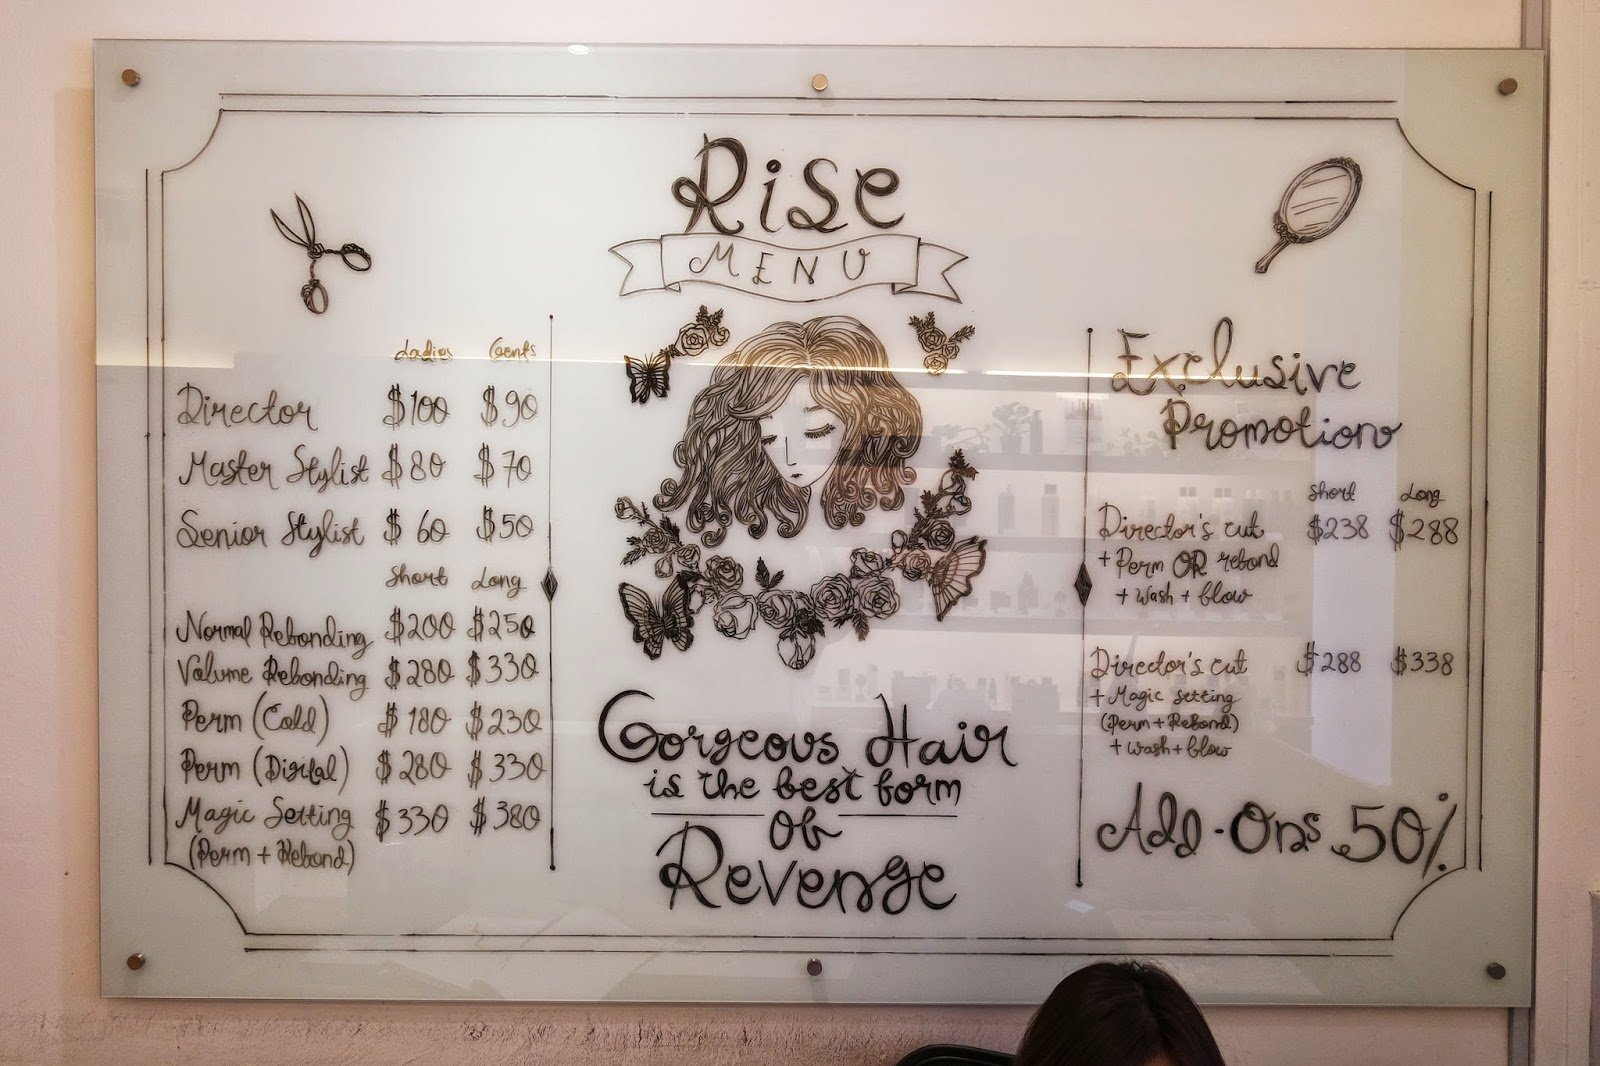 Rise
MENU
Ladies Gents
Director $100 $90
Master Stylist $80 $70
Senior Stylist $60 $50
Short Long
Normal Rebonding $200 $250
Volume Rebonding $280 $330
Perm (Cold) $180 $230
Perm (Digital) $280 $330
Magic Setting $330 $380
(Perm + Rebond)
Gorgeous Hair
is the best form
Of
Revenge
Exclusive
Promotion
Short Long
Director's cut $238 $288
+ Perm OR rebond
+ Wash + Blow
Director's cut $288 $338
+ Magic Setting
(Perm + Rebond)
+ Wash + Blow
Add-Ons 50%